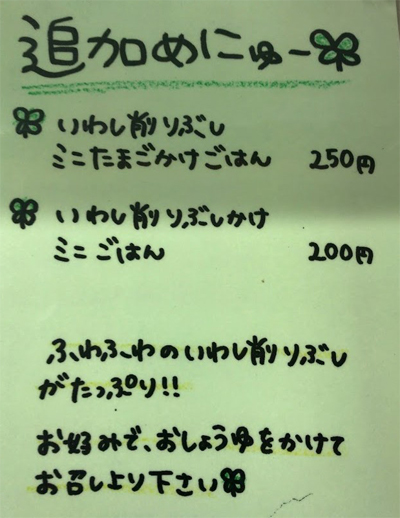 追加めにゅー
いわし削りぶし
ミニたまごかけごはん 250円
いわし削りぶしかけ
ミニごはん 200円
ふわふわのいわし削りぶし
がたっぷり!!
お好みで、おしょうゆをかけて
お召しより下さい